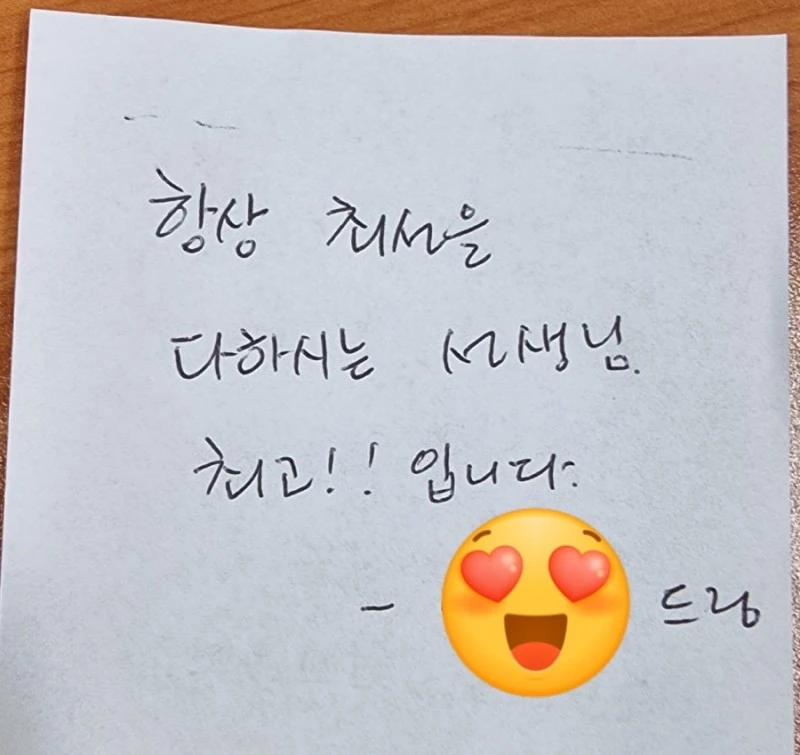 항상 최선을
다하시는 선생님.
최고!! 입니다.
- 드림